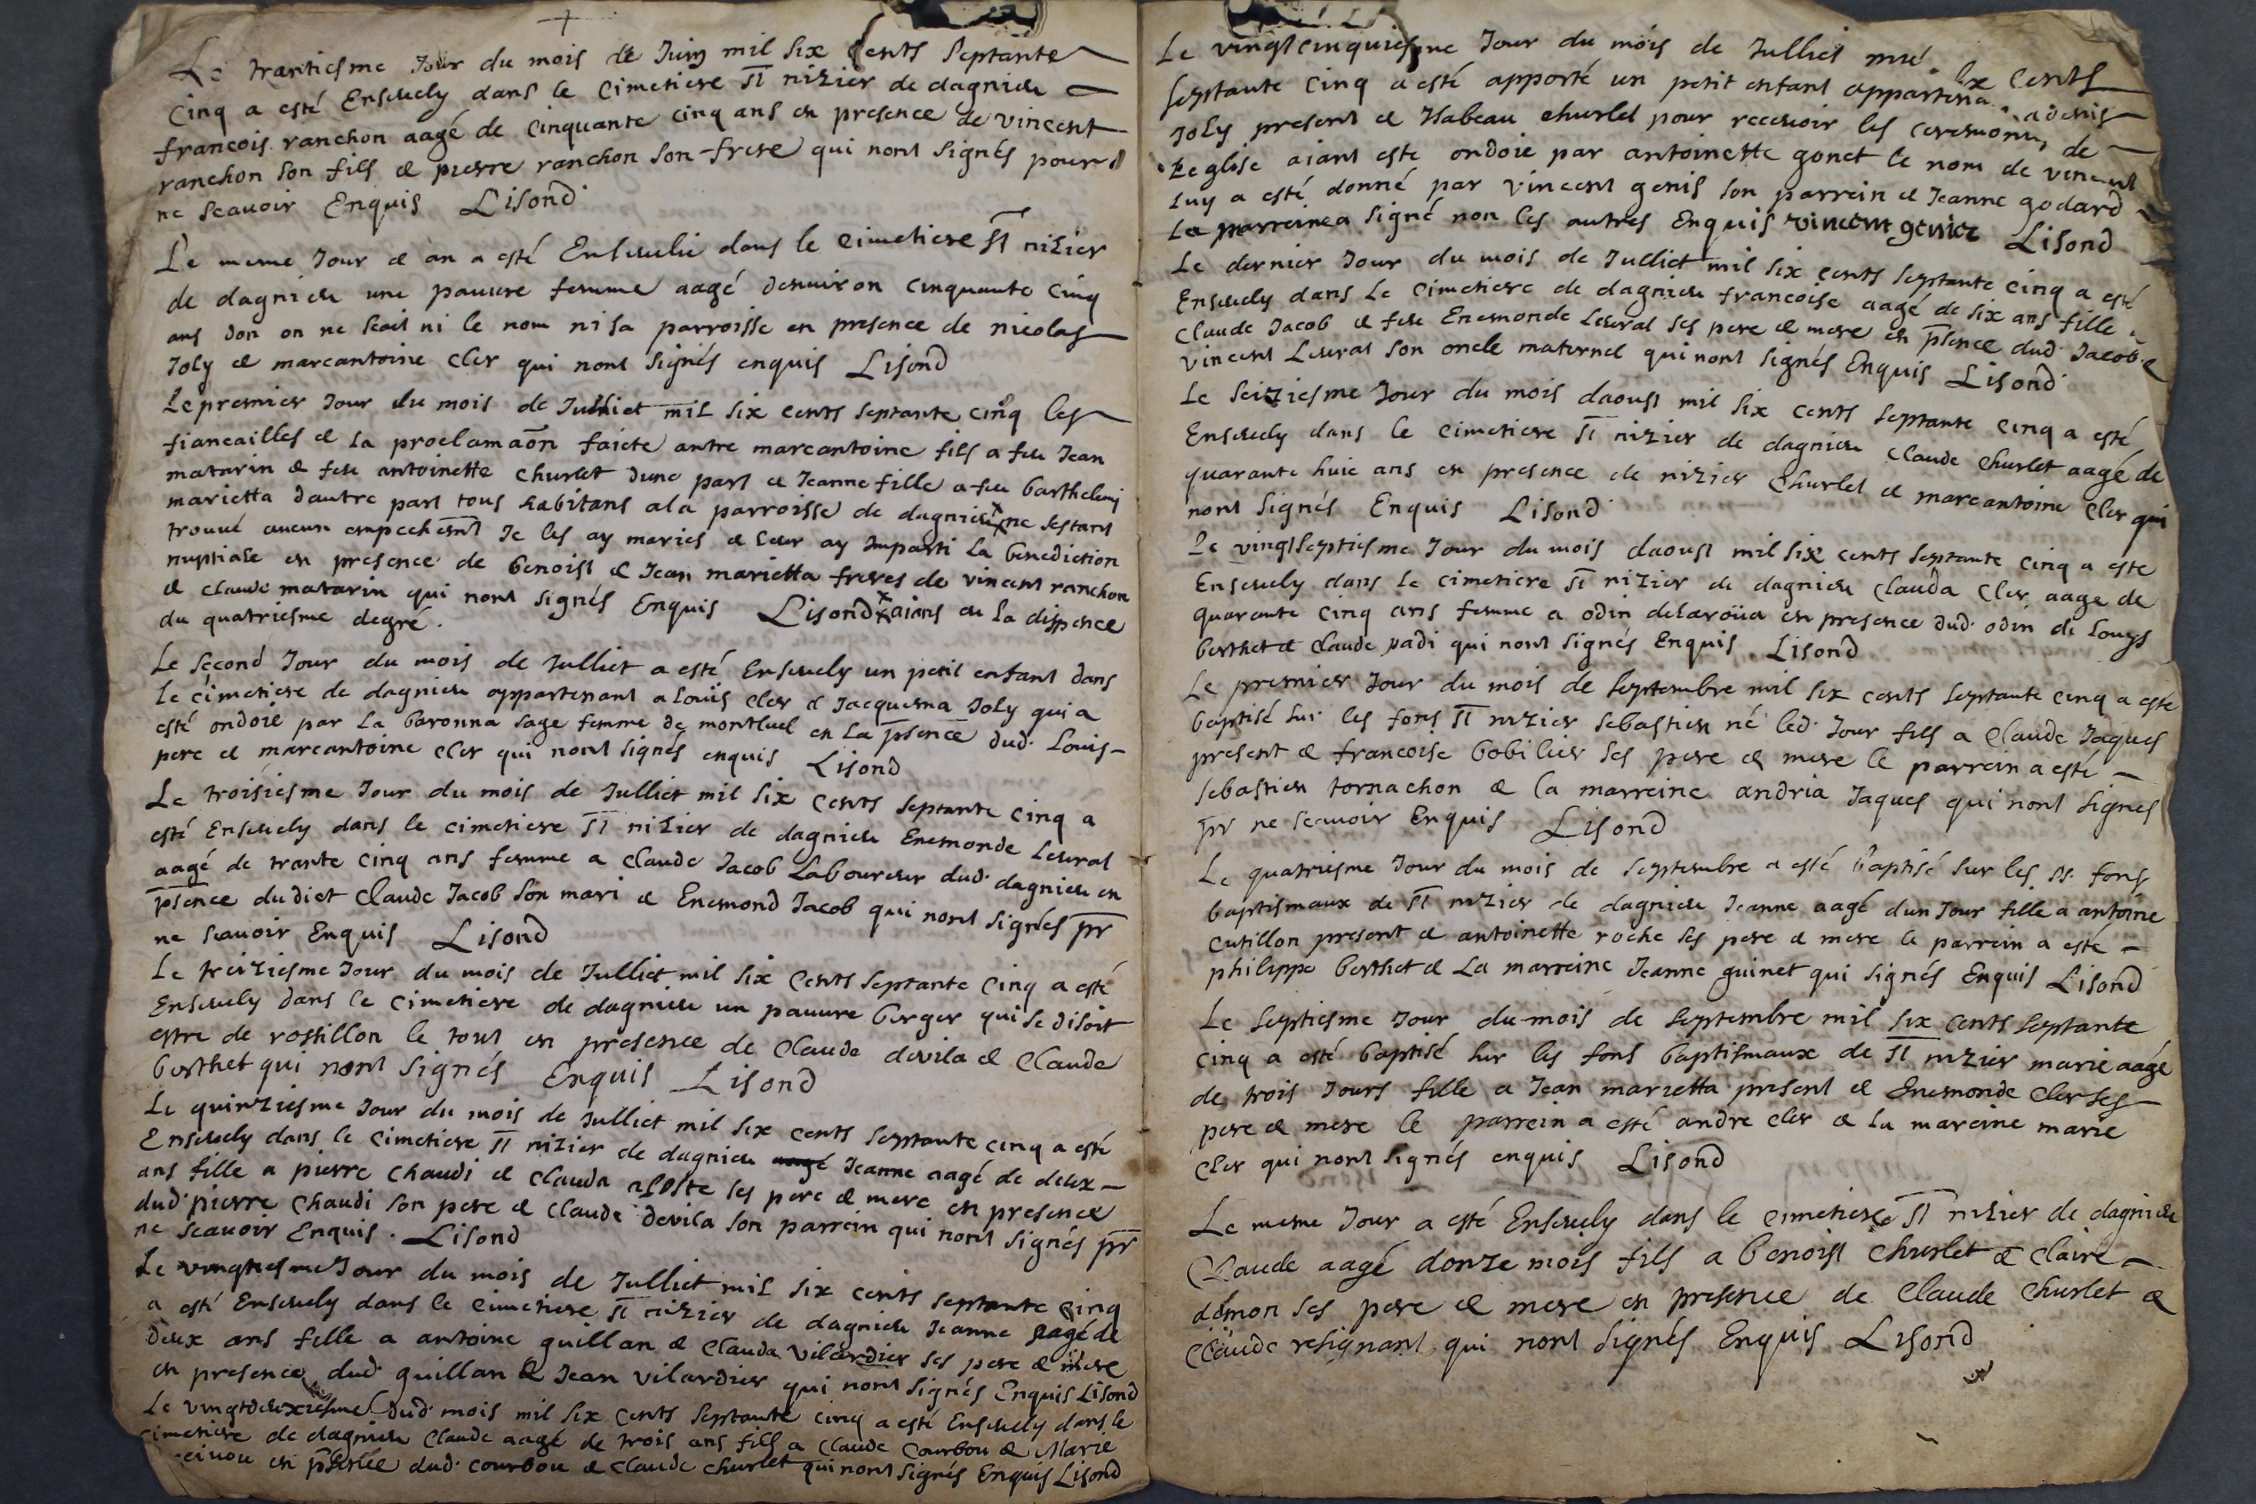 Le trantiesme Jour du mois de Juin mil six cents septante
cinq a esté Enseuely dans le cimetiere st nizier de dagnieu
francois ranchon aagé de cinquante cinq ans en presence de vincent
ranchon son fils & pierre ranchon son frere qui nont signés pour
ne scauoir Enquis Lisond
Le meme Jour & an a esté Enseuelie dans le cimetiere st nizier
de dagnieu une pauure femme aagé denuiron cinquante cinq
ans don on ne scait ni le nom ni sa parroisse en presence de nicolas
Joly & marcantoine cler qui nont signés enquis Lisond
Le premier Jour du mois de Julliet mil six cents septante cinq les
fiancailles & la proclamaõn faicte antre marcantoine fils a feu Jean
matarin & feu antoinette churlet dune part & Jeanne fille a feu barthelemi
marietta dautre part tous habitans a la parroisse de dagnieu x ne sestant
trouué aucun empechemt Je les ay mariés & leur ay Imparti la benediction
nuptiale en presence de benoist & Jean marietta freres de vincent ranchon
& claude matarin qui nont signés Enquis Lisond x aians eu la dispence
du quatriesme degré.
Le second Jour du mois de Julliet a esté Enseuely un petit enfant dans
le cimetiere de dagnieu appartenant a Louis cler & Jacquema Joly qui a
esté ondoié par la baronna sage femme de montluel en la psence dud. Louis
pere & marcantoine cler qui nont signés enquis Lisond
Le troisiesme Jour du mois de Julliet mil six cents septante cinq a
esté Enseuely dans le cimetiere st nizier de dagnieu Enemonde Leural
aagé de trante cinq ans femme a claude Jacob Laboureur dud. dagnieu en
psence dudict Claude Jacob son mari & Enemond Jacob qui nont signés pr
ne scauoir Enquis Lisond
Le treiziesme Jour du mois de Julliet mil six cents septante cinq a esté
Enseuely dans le cimetiere de dagnieu un pauure berger qui se disoit
estre de rossillon le tout en presence de Claude devila & Claude
berthet qui nont signés Enquis Lisond
Le quinziesme Jour du mois de Julliet mil six cents septante cinq a esté
Enseuely dans le cimetiere st nizier de dagnieu Jeanne aagé de deux
ans fille a pierre chaudi & clauda aloste ses pere & mere en presence
dud. pierre chaudi son pere & claude devila son parrein qui nont signés pr
ne scauoir Enquis. Lisond
Le vingtiesme Jour du mois de Julliet mil six cents septante cinq
a esté Enseuely dans le cimetiere st nizier de dagnieu Jeanne aagé de
deux ans fille a antoine guillan & clauda vilardier ses pere & mere
en presence dud. guillan & Jean vilardier qui nont signés Enquis Lisond
Le vingtdeuxiesme dud. mois mil six cents septante cinq a esté Enseuely dans le
cimetiere de dagnieu Claude aagé de trois ans fils a Claude courbou & Marie
en psence dud. courbou & claude churlet qui nont signés Enquis Lisond
Le vingtcinquiesme Jour du mois de Julliet six cents
septante cinq a esté apporté un petit enfant appartena a denis
Joly present & Isabeau churlet pour receuoir les ceremonies de
Leglise aiant este ondoié par antoinette gonet le nom de vincent
luy a esté donné par vincent genis son parrein & Jeanne godard
La marreine a signé non les autres Enquis vincent genier Lisond
Le dernier Jour du mois de Julliet mil six cents septante cinq a esté
Enseuely dans le cimetiere de dagnieu francoise aagé de six ans fille a
Claude Jacob & feu Enemonde Leural ses pere & mere en psence dud. Jacob &
vincent Leurat son oncle maternel qui nont signés Enquis Lisond
Le seiziesme Jour du mois daoust mil six cents septante cinq a esté
Enseuely dans le cimetiere st nizier de dagnieu Claude Churlet aagé de
quarante huic ans en presence de nizier Churlet & marcantoine Cler qui
nont signés Enquis Lisond
Le vingtseptiesme Jour du mois daoust mil six cents septante cinq a este
Enseuely dans le cimetiere st nizier de dagnieu Clauda Cler aage de
quarante cinq ans femme a odin delaroüa en presence dud. odin de Louys
berthet & Claude padi qui nont signés Enquis. Lisond
Le premier Jour du mois de septembre mil six cents septante cinq a esté
baptisé sur les fons st nizier sebastien né led. Jour fils a Claude Jaques
present & francoise bobilier ses pere & mere le parrein a esté
sebastien tornachon & la marreine andria Jaques qui nont signes
pr ne scauoir Enquis Lisond
Le quatriesme Jour du mois de septembre a esté baptisé sur les ss. fons
baptismaux de st nizier de dagnieu Jeanne aagé dun Jour fille a antoine
cutillon present & antoinette roche ses pere & mere le parrein a esté
philippe berthet & La marreine Jeanne guinet qui signés Enquis Lisond
Le septiesme Jour du mois de septembre mil six cents septante
cinq a esté baptisé sur les fons baptismaux de st nizier marie aagé
de trois Jours fille a Jean marietta present & Enemonde Cler ses
pere & mere le parrein a esté andre cler & la mareine marie
cler qui nont signés enquis Lisond
Le meme Jour a esté Enseuely dans le cimetiere st nizier de dagnieu
Claude aagé donze mois fils a benoist churlet & Claire
démon ses pere & mere en presence de Claude churlet &
Claude resignant qui nont signés Enquis Lisond